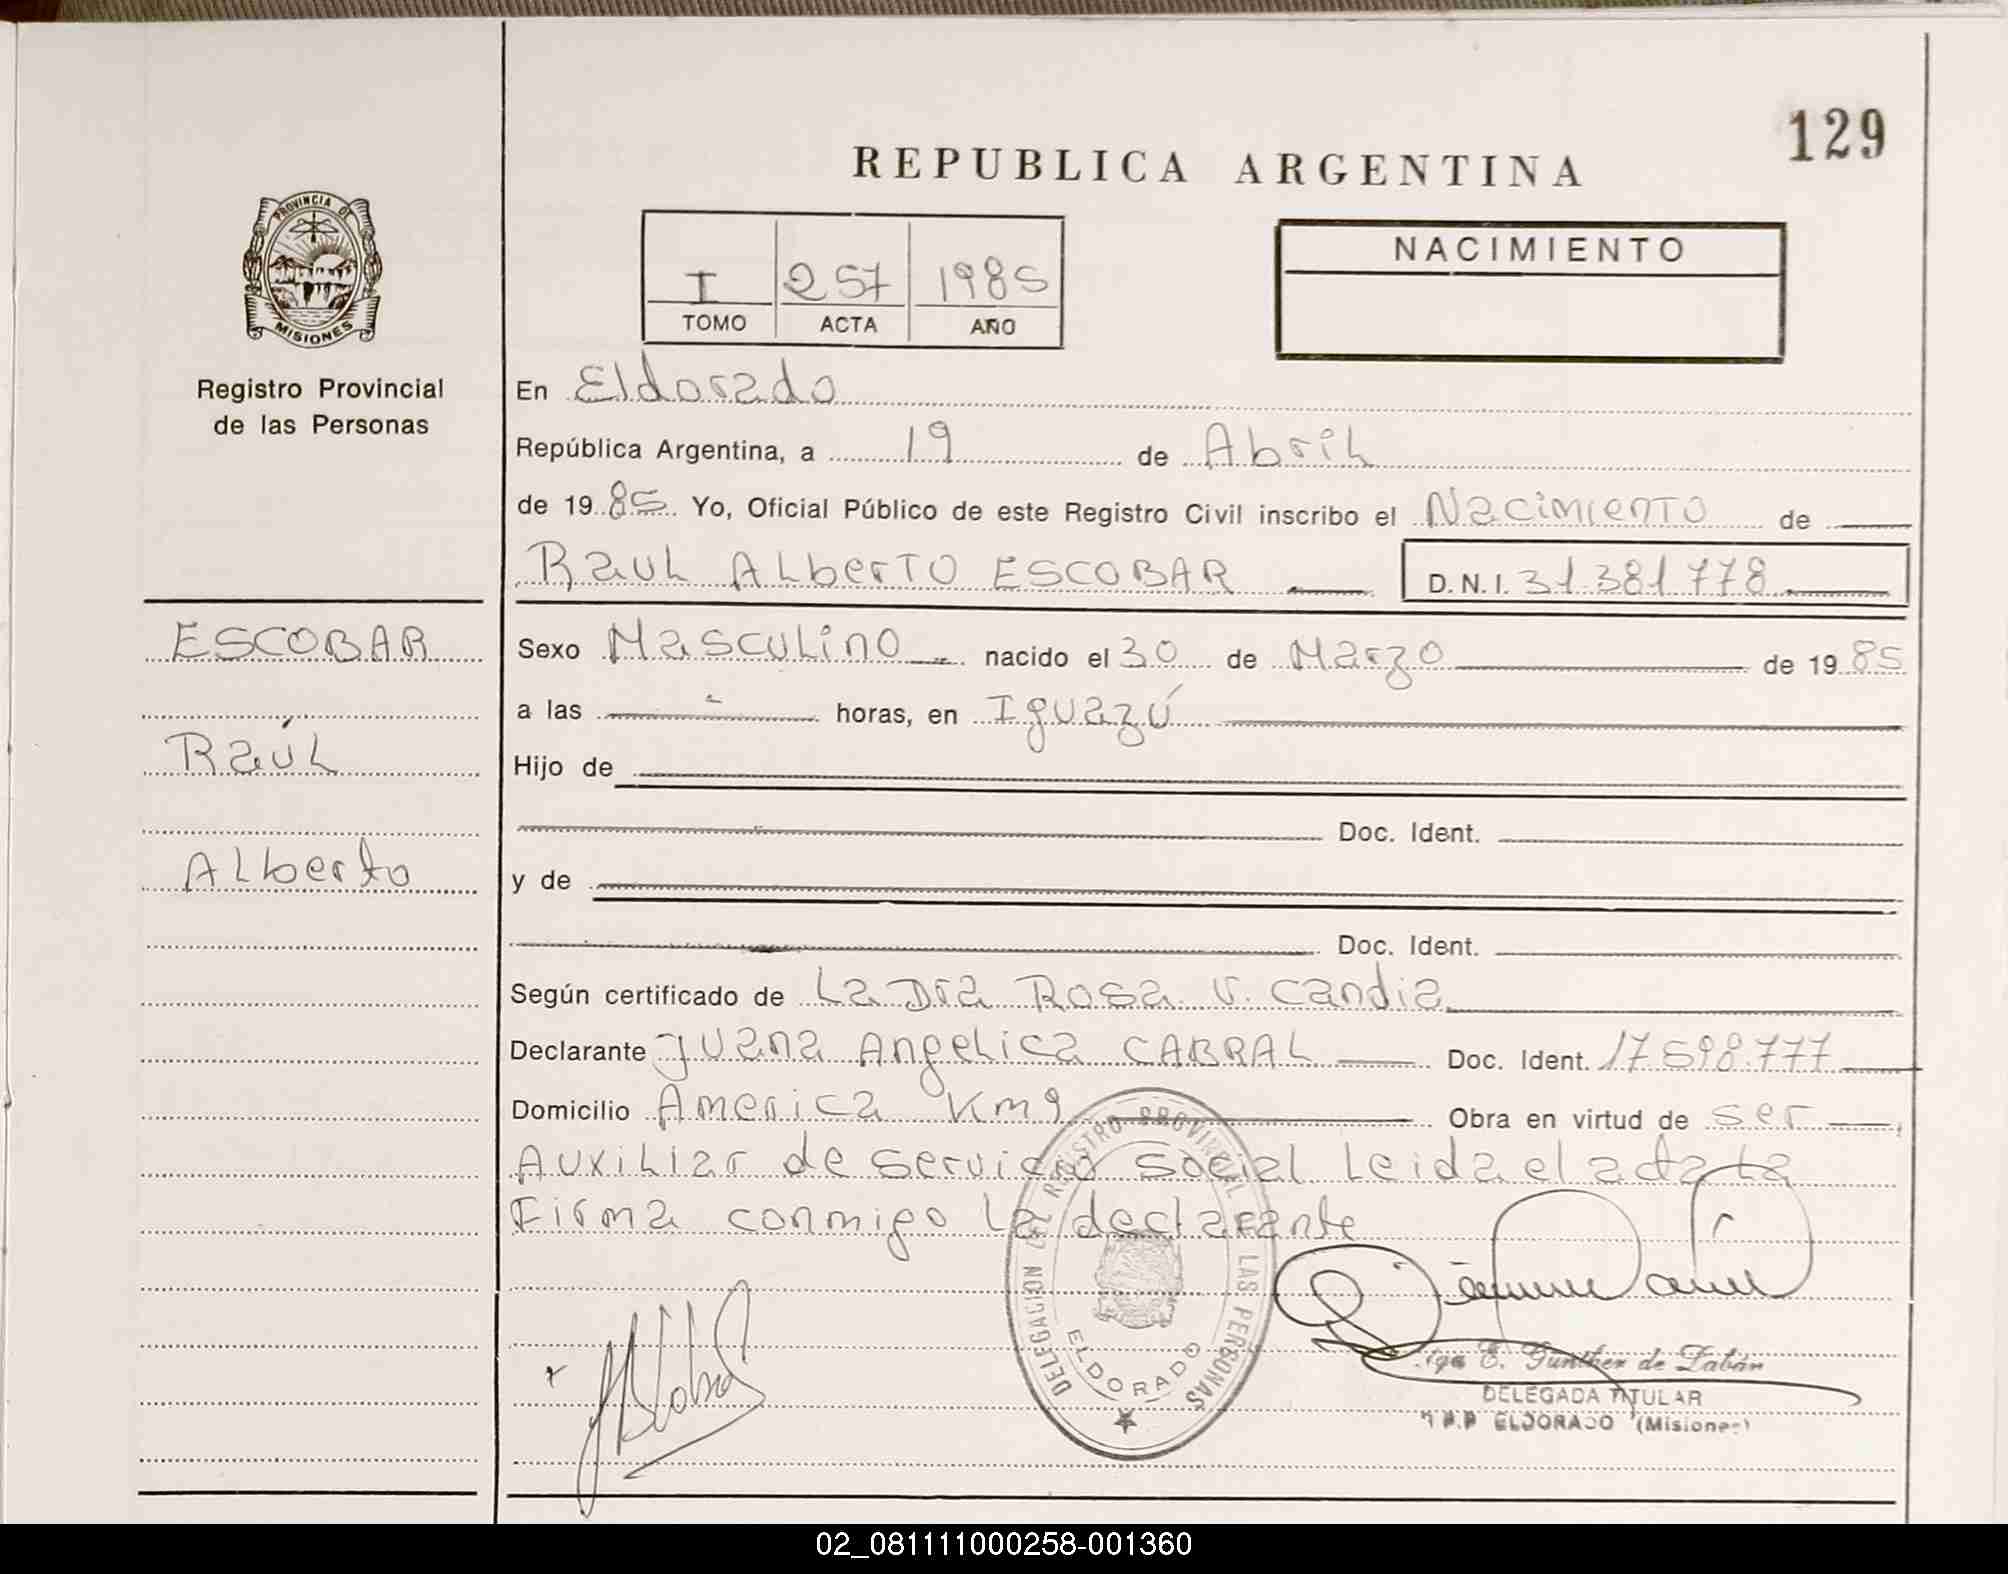 129
REPUBLICA ARGENTINA
PROVINCIA DE
MISIONES
Registro Provincial
de las Personas
I 257 1985
TOMO ACTA AÑO
NACIMIENTO
En Eldorado
República Argentina, a 19 de Abril
de 1985 Yo, Oficial Público de este Registro Civil inscribo el Nacimiento de
Raul Alberto ESCOBAR D.N.I. 31.381.778
ESCOBAR
Raúl
Alberto
Sexo Masculino nacido el 30 de Marzo de 1985
a las horas, en Iguazú
Hijo de
Doc. Ident.
y de
Doc. Ident.
Según certificado de La Dra Rosa V. Candia
Declarante Juana Angelica CABRAL Doc. Ident. 17.598.777
Domicilio America Km 9 Obra en virtud de ser
Auxiliar de servicio social Leida el acta la
Firma conmigo la declarante
DELEGACION DEL REGISTRO PROVINCIAL DE LAS PERSONAS
ELDORADO
E. Gunther de Zabán
DELEGADA TITULAR
ELDORADO (Misiones)
02_081111000258-001360